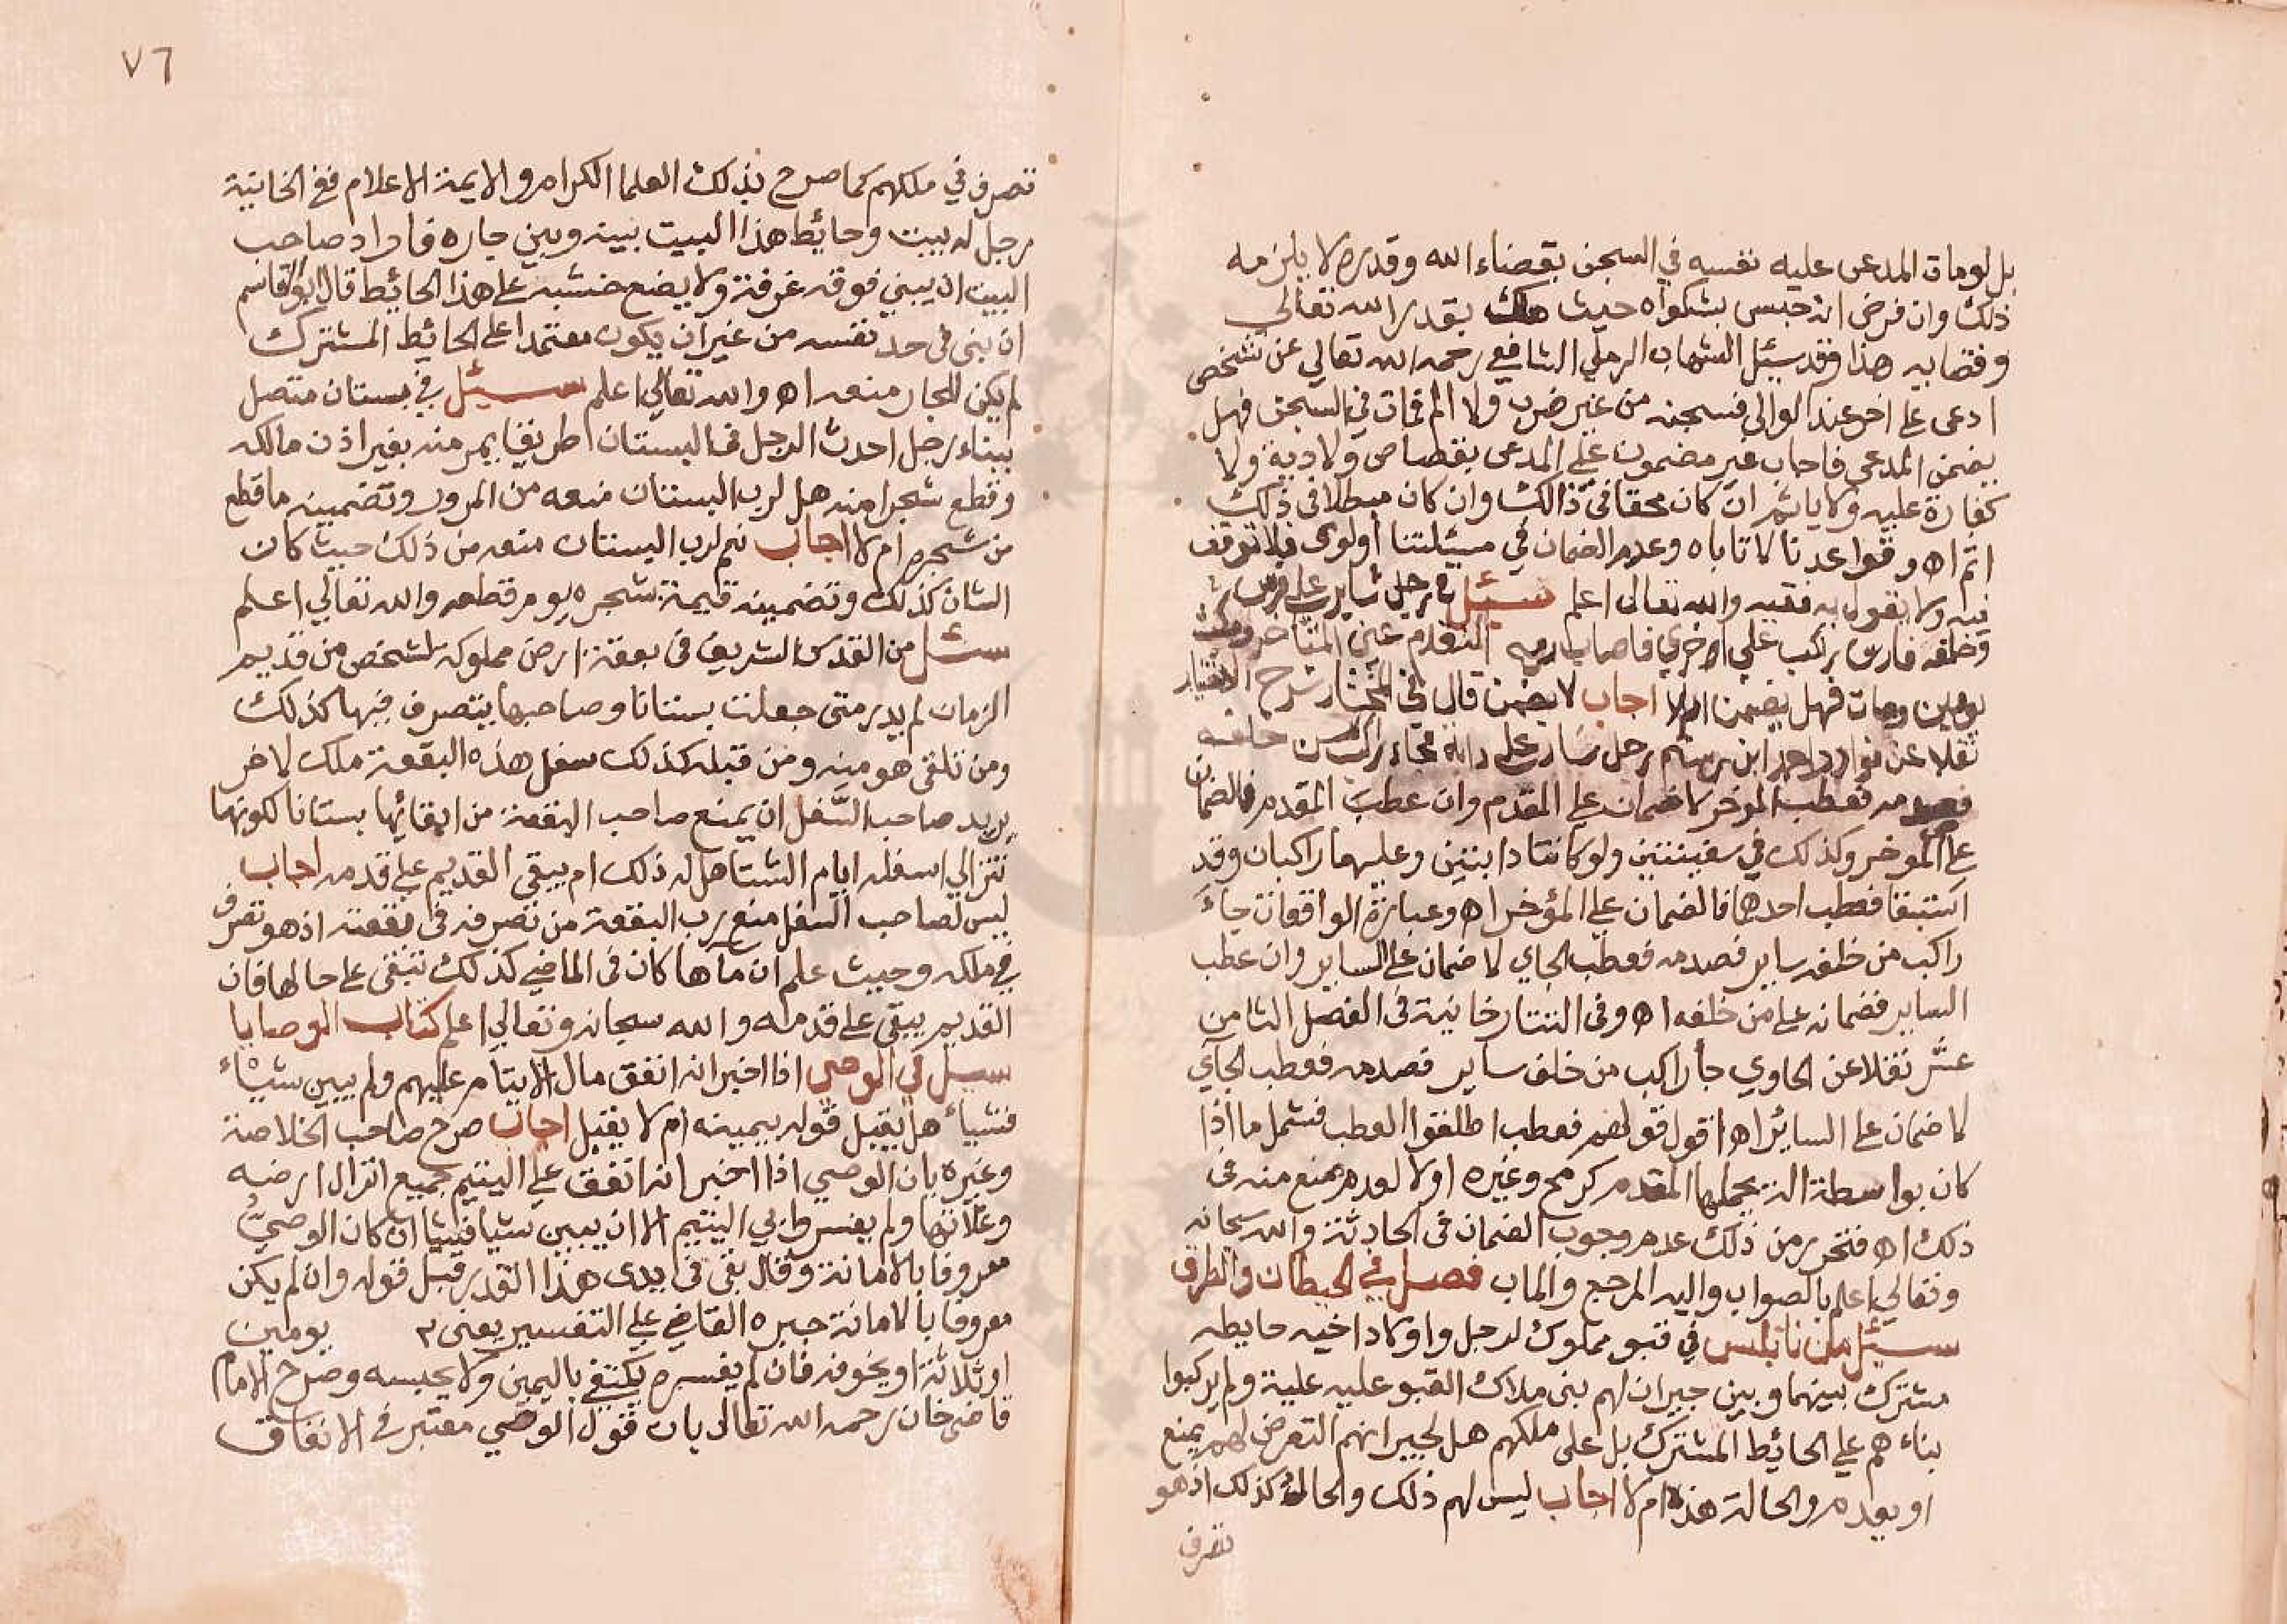 بل لو مات المدعى عليه نفسه في السجن بقضاء الله وقدره لا يلزمه
ذلك وان فرض انه حبس بشكواه حيث هلك بقدر الله تعالي
وقضايه هذا وقد سيئل الشهاب الرملي الشافعي رحمه الله تعالي عن شخص
ادعى على اخر عند الوالي فسجنه من غير ضرب ولا الم فمات في السجن فهل
يضمن المدعي فاجاب غير مضمون علي المدعى بقصاص ولا دية ولا
كفارة عليه ولا ياثم ان كان محقا في ذالك وان كان مبطلا في ذلك
اثم اه وقواعدنا لا تاباه وعدم الضمان في مسيئلتنا أولوى فلا توقف
فيه ولا يقول به فقيه والله تعالى اعلم سئيل في رجل ساير علي فرس
وخلفه فارس راكب علي اخري فاصاب المتقدم عين المتاخر ومكث
يومين ومات فهل يضمن ام لا اجاب لا يضمن قال في المختار شرح الاختيار
نقلا عن نوادر احمد ابن رستم رجل سار على دابة فجاء راكب من خلفه
فصدمه فعطب الموخر لا ضمان على المقدم وان عطب المقدم فالضمان
على الموخر وكذلك في سفينتين ولو كانتا دابتين وعليهما راكبان وقد
استبقا فعطب احدهما فالضمان على المؤخر اه وعبارة الواقعات جاءَ
راكب من خلف ساير فصدمه فعطب الجاي لا ضمان على الساير وان عطب
الساير فضمانه على من خلفه اه وفى التتار خانية فى الفصل الثامن
عشر نقلا عن الحاوي جأ راكب من خلف ساير فصدمه فعطب الجآي
لا ضمان على السائر اه اقول قولهم فعطب اطلقوا العطب فشمل ما اذا
كان بواسطة الة يحملها المقدم كرمح وغيره اولا لعدم يمنع منه فى
ذلك اه فتحرر من ذلك عدم وجوب الضمان فى الحادثة والله سبحانه
وتعالي اعلم بالصواب واليه المرجع والماب فصل في الحيطان والطرق
سيئل من نابلس في قبو مملوك لرجل واولاد اخيه حايطه
مشترك بينهما وبين جيران لهم بنى ملاك القبو عليه علية ولم يركبوا
بناءهم على الحائيط المشترك بل على ملكهم هل لجيرانهم التعرض لهم بمنع
او بعدم والحالة هذه ام لا اجاب ليس لهم ذلك والحالة كذلك اذ هو
تصرف
٧٦
تصرف في ملكهم كما صرح بذلك العلما الكرام والايمة الاعلام فف الخانية
رجل له بيت وحائيط هذا البيت بينه وبين جاره فاراد صاحب
البيت ان يبني فوقه غرفة ولا يضع خشبه على هذا الحائيط قال ابو القاسم
ان بنى فى حد نفسه من غير ان يكون معتمدا على الحائيط المشترك
لم يكن للجار منعه اه والله تعالي اعلم سيئل في بستان متصل
ببناء رجل احدث الرجل فى البستان طريقا يمر منه بغير اذن مالكه
وقطع شجرا منه هل لرب البستان منعه من المرور وتضمينه ما قطع
من شجره ام لا اجاب نعم لرب البستان منعه من ذلك حيث كان
الشان كذلك وتضمينه قيمة شجره يوم قطعه والله تعالي اعلم
سئل من القدس الشريف فى بقعة ارض مملوكة لشخص من قديم
الزمان لم يدر متى جعلت بستانا وصاحبها يتصرف فيها كذلك
ومن تلقى هو منه ومن قبله كذلك سفل هذه البقعة ملك لاخر
يريد صاحب السّفل ان يمنع صاحب البقعة من ابقائها بستانا لكونها
تنز الي اسفله ايام الشتا هل له ذلك ام يبقى القديم علي قدمه اجاب
ليس لصاحب السفل منع رب البقعة من تصرفه فى بقعته اذ هو تصرف
في ملكه وحيث علم ان ماها كان فى الماضي كذلك تبقى على حالها فان
القديم يبقى على قدمه والله سبحانه وتعالي اعلم كتاب الوصايا
سيل في الوصي اذا اخبر انه انفق مال الايتام عليهم ولم يبين شيئاء
فشياء هل يقبل قوله بيمينه ام لا يقبل اجاب صرح صاحب الخلاصة
وغيره بان الوصي اذا اخبر انه انفق على اليتيم جميع انزال ارضه
وغلاتها ولم يفسر وابي اليتيم الا ان يبين شيا فشيا ان كان الوصيُّ
معروفا بالامانة وقال بقى فى ايدى هذا القدر قبل قوله وان لم يكن
معروفا بالامانة جبره القاضي على التفسير يعنى ٢ يومين
او ثلاثة او يخوفه فان لم يفسره يكتفي باليمين ولا يحبسه وصرح الامام
قاضى خان رحمه الله تعالى بان قول الوصي معتبر في الانفاق